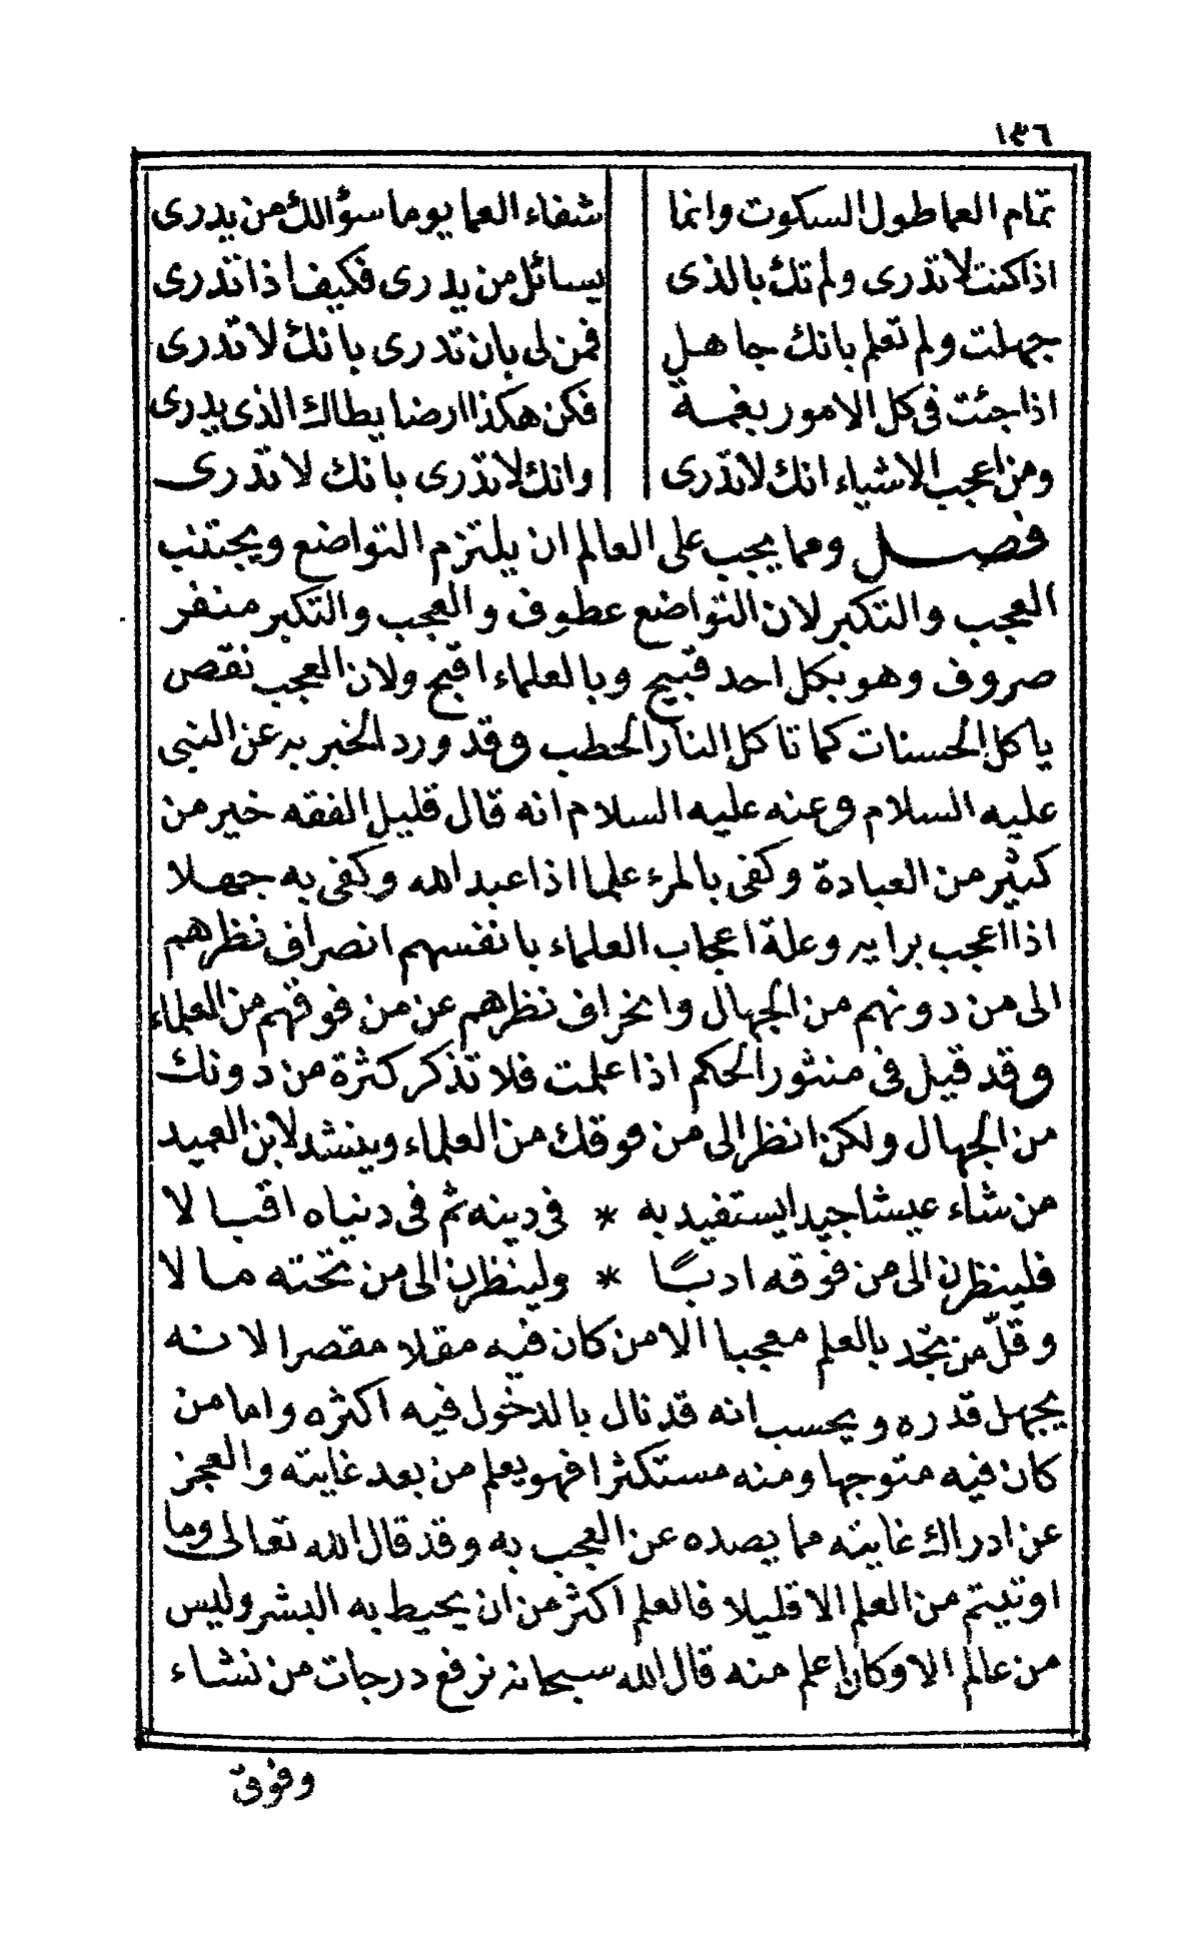 ١٣٦
تمام العما طول السكوت وانما شفاء العما يوما سؤالك من يدرى
اذا كنت لا تدرى ولم تك بالذى يسائل من يدرى فكيف اذا تدرى
جهلت ولم تعلم بانك جاهل فمن لى بان تدرى بانك لا تدرى
اذا جئت فى كل الامور بغمة فكن هكذا ارضا يطاك الذى يدرى
ومن اعجب الاشياء انك لا تدرى وانك لا تدرى بانك لا تدرى
فصل ومما يجب على العالم ان يلتزم التواضع ويجتنب
العجب والتكبر لان التواضع عطوف والعجب والتكبر منفر
صروف وهو بكل احد قبيح وبالعلماء اقبح ولان العجب نقص
ياكل الحسنات كما تاكل النار الحطب وقد ورد الخبر به عن النبى
عليه السلام وعنه عليه السلام انه قال قليل الفقه خير من
كثير من العبادة وكفى بالمرء علما اذا عبد الله وكفى به جهلا
اذا اعجب برايه وعلة اعجاب العلماء بانفسهم انصراف نظرهم
الى من دونهم من الجهال وانحراف نظرهم عن من فوقهم من العلماء
وقد قيل فى منثور الحكم اذا علمت فلا تذكر كثرة من دونك
من الجهال ولكن انظر الى من فوقك من العلماء وينشد لابن العميد
من شاء عيشا جيدا يستفيد به * فى دينه ثم فى دنياه اقبالا
فلينظرن الى من فوقه ادبًا * ولينظرن الى من تحته مالا
وقلّ من تجد بالعلم معجبا الا من كان فيه مقلا مقصرا لانه
يجهل قدره ويحسب انه قد نال بالدخول فيه اكثره واما من
كان فيه متوجها ومنه مستكثرا فهو يعلم من بعد غايته والعجز
عن ادراك غايته مما يصده عن العجب به وقد قال الله تعالى وما
اوتيتم من العلم الا قليلا فالعلم اكثر من ان يحيط به البشر وليس
من عالم الا وكان اعلم منه قال الله سبحانه نرفع درجات من نشاء
وفوق